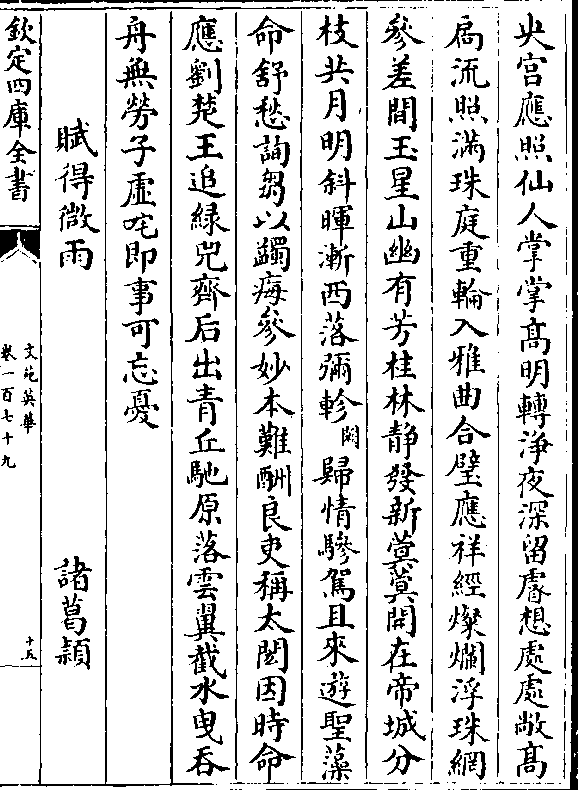 央宫應照仙人掌掌髙明轉淨夜深留處想處處敞髙
扄流照滿珠庭重輪入雅曲合璧應祥經燦爛浮珠網
參差間玉星山幽有芳桂林静發新蓂蓂開在帝城分
枝共月明斜暉漸西落彌軫闕歸情驂駕且來遊聖藻
命舒愁詢芻以蠲痗參妙本難酬良吏稱太闊因時命
應劉楚王追緑兕齊后出青丘馳原落雲翼截水曳吞
舟無勞子虚咤即事可忘憂
賦得微雨 諸葛頴
欽定四庫全書
文苑英華
卷一百七十九
十五